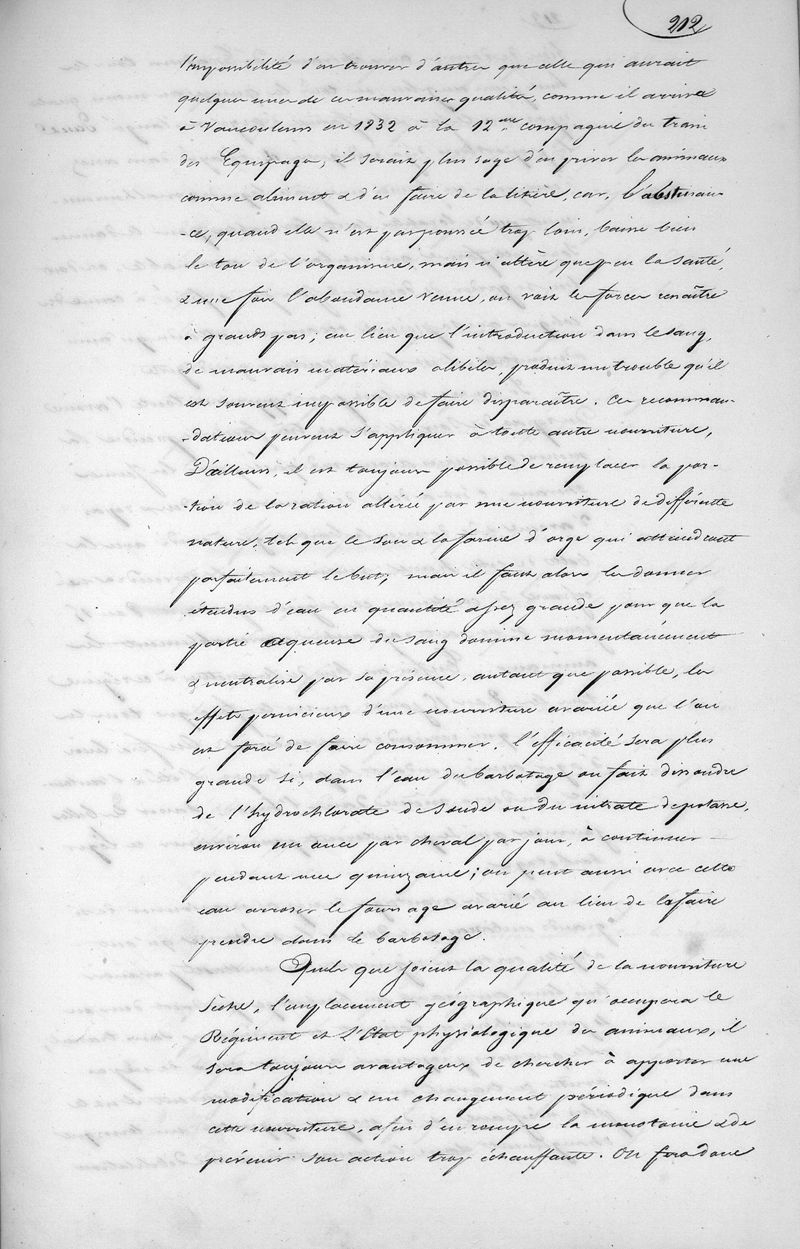 212
l'impossibilité d'en trouver d'autre que celle qui aurait
quelques unes de ces mauvaises qualités, comme il arriva
à Vaucouleurs en 1832 à la 12me compagnie du train
des Equipages, il serait plus sage d'en priver les animaux
comme aliment & d'en faire de la litière, car, l'abstinen-
-ce, quand elle n'est pas poussée trop loin, baisse bien
le ton de l'organisme, mais n'altère que peu la santé,
& une fois l'abondance venue, on voit les forces renaître
à grands pas; au lieu que l'introduction dans le sang,
de mauvais matériaux alibiles, produit un trouble qu'il
est souvent impossible de faire disparaître. Ces recomman-
-dations peuvent s'appliquer à toute autre nourriture,
D'ailleurs, il est toujours possible de remplacer la por-
-tion de la ration altérée par une nourriture de différente
nature, tels que le son & la farine d'orge qui atteindront
parfaitement le but; mais il faut alors les donner
étendus d'eau en quantité assez grande pour que la
partie aqueuse du sang domine momentanément
& neutralise par sa présence, autant que possible, les
effets pernicieux d'une nourriture avariée que l'on
est forcé de faire consommer. l'efficacité sera plus
grande si, dans l'eau du barbotage on fait dissoudre
de l'hydrochlorate de soude ou du nitrate de potasse,
environ une once par cheval par jour, à continuer
pendant une quinzaine; on peut aussi avec cette
eau arroser le fourrage avarié au lieu de la faire
prendre dans le barbotage.
Quels que soient la qualité de la nourriture
sèche, l'emplacement géographique qu'occupera le
Régiment et l'Etat physiologique des animaux, il
sera toujours avantageux de chercher à apporter une
modification & un changement périodique dans
cette nourriture, afin d'en rompre la monotonie & de
prévenir son action trop échauffante. On fera donc